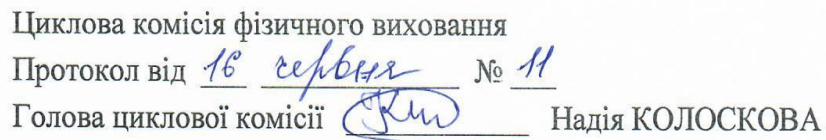 Циклова комісія фізичного виховання
Протокол від 16 червня № 11
Голова циклової комісії Надія КОЛОСКОВА